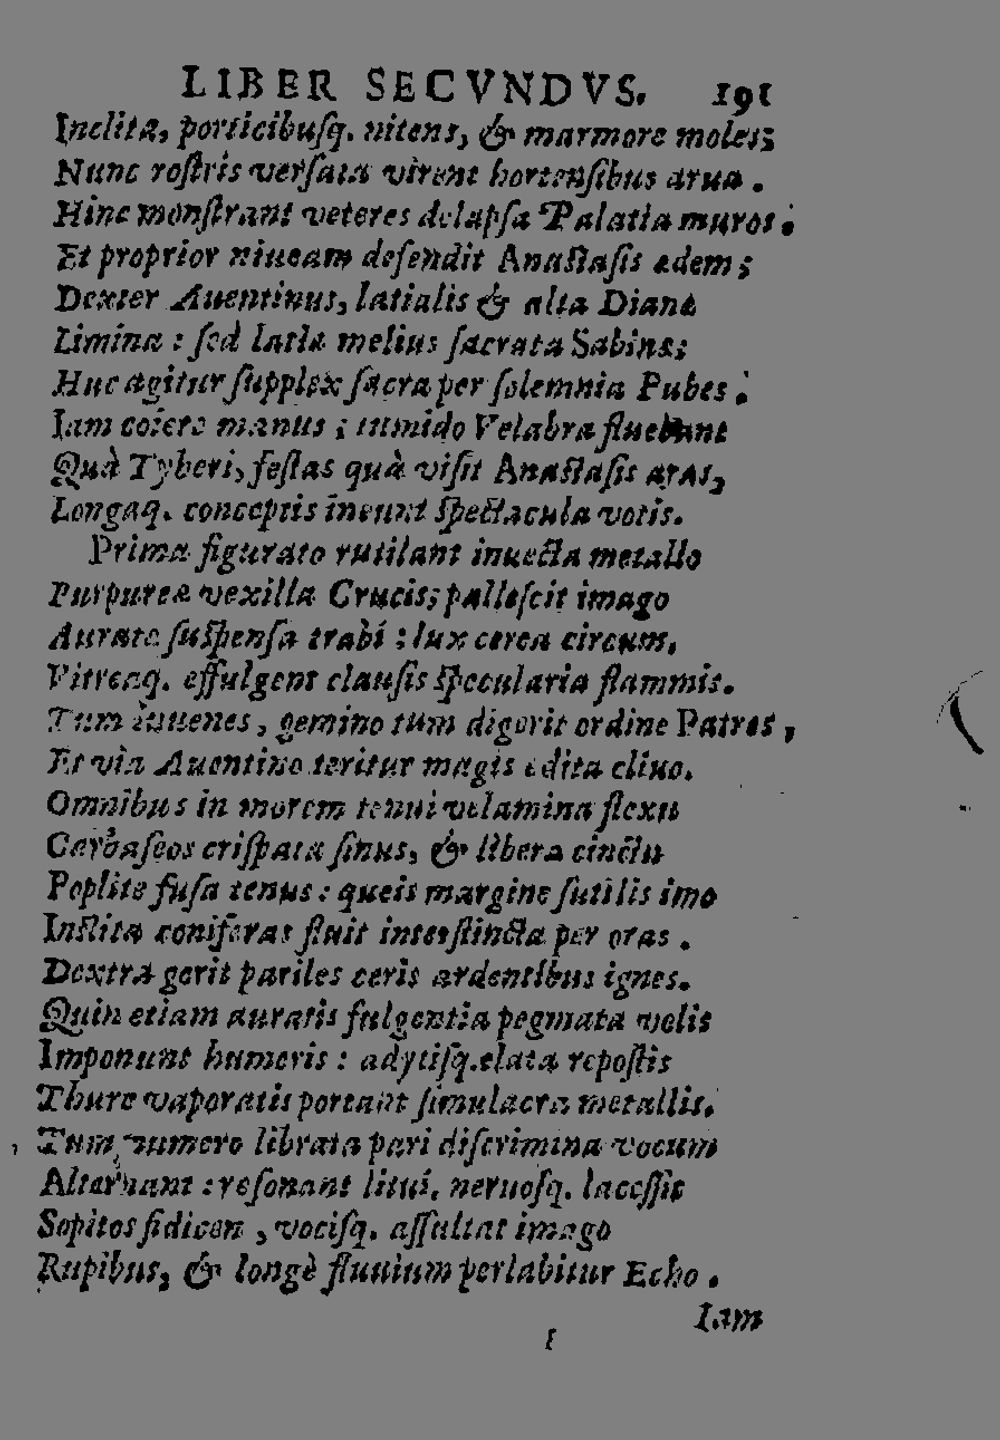 LIBER SECVNDVS. 191
Inclita, porticibusq. nitens, & marmore moles;
Nunc rostris versata virent hortensibus arua.
Hinc monstrant veteres delapsa Palatia muros.
Et proprior niueam defendit Anastasis ędem;
Dexter Auentinus, latialis & alta Dianę
Limina: sed latlæ melius sacrata Sabinæ;
Huc agitur supplex sacra per solemnia Pubes.
Iam coiere manus; tumido Velabra fluebant
Quà Tyberi, festas quà visit Anastasis aras,
Longaq. conceptis ineunt spectacula votis.
Prima figurato rutilant inuecta metallo
Purpureæ vexilla Crucis; pallescit imago
Auratę suspensa trabi; lux cerea circum,
Vitreaq. effulgent clausis specularia flammis.
Tum iuuenes, gemino tum digerit ordine Patres,
Et via Auentino teritur magis edita cliuo.
Omnibus in morem tenui velamina flexu
Carbaseos crispata sinus, & libera cinctu
Poplite fusa tenus: queis margine sutilis imo
Instita coniferas fluit interstincta per oras.
Dextra gerit pariles ceris ardentibus ignes.
Quin etiam auratis fulgentia pegmata velis
Imponunt humeris: adytisq. elata repostis
Thure vaporatis portant simulacra metallis.
Tum numero librata pari discrimina vocum
Alternant: resonant litui, neruosq. lacessit
Sopitos fidicen, vocisq. assultat imago
Rupibus, & longè fluuium perlabitur Echo.
Iam